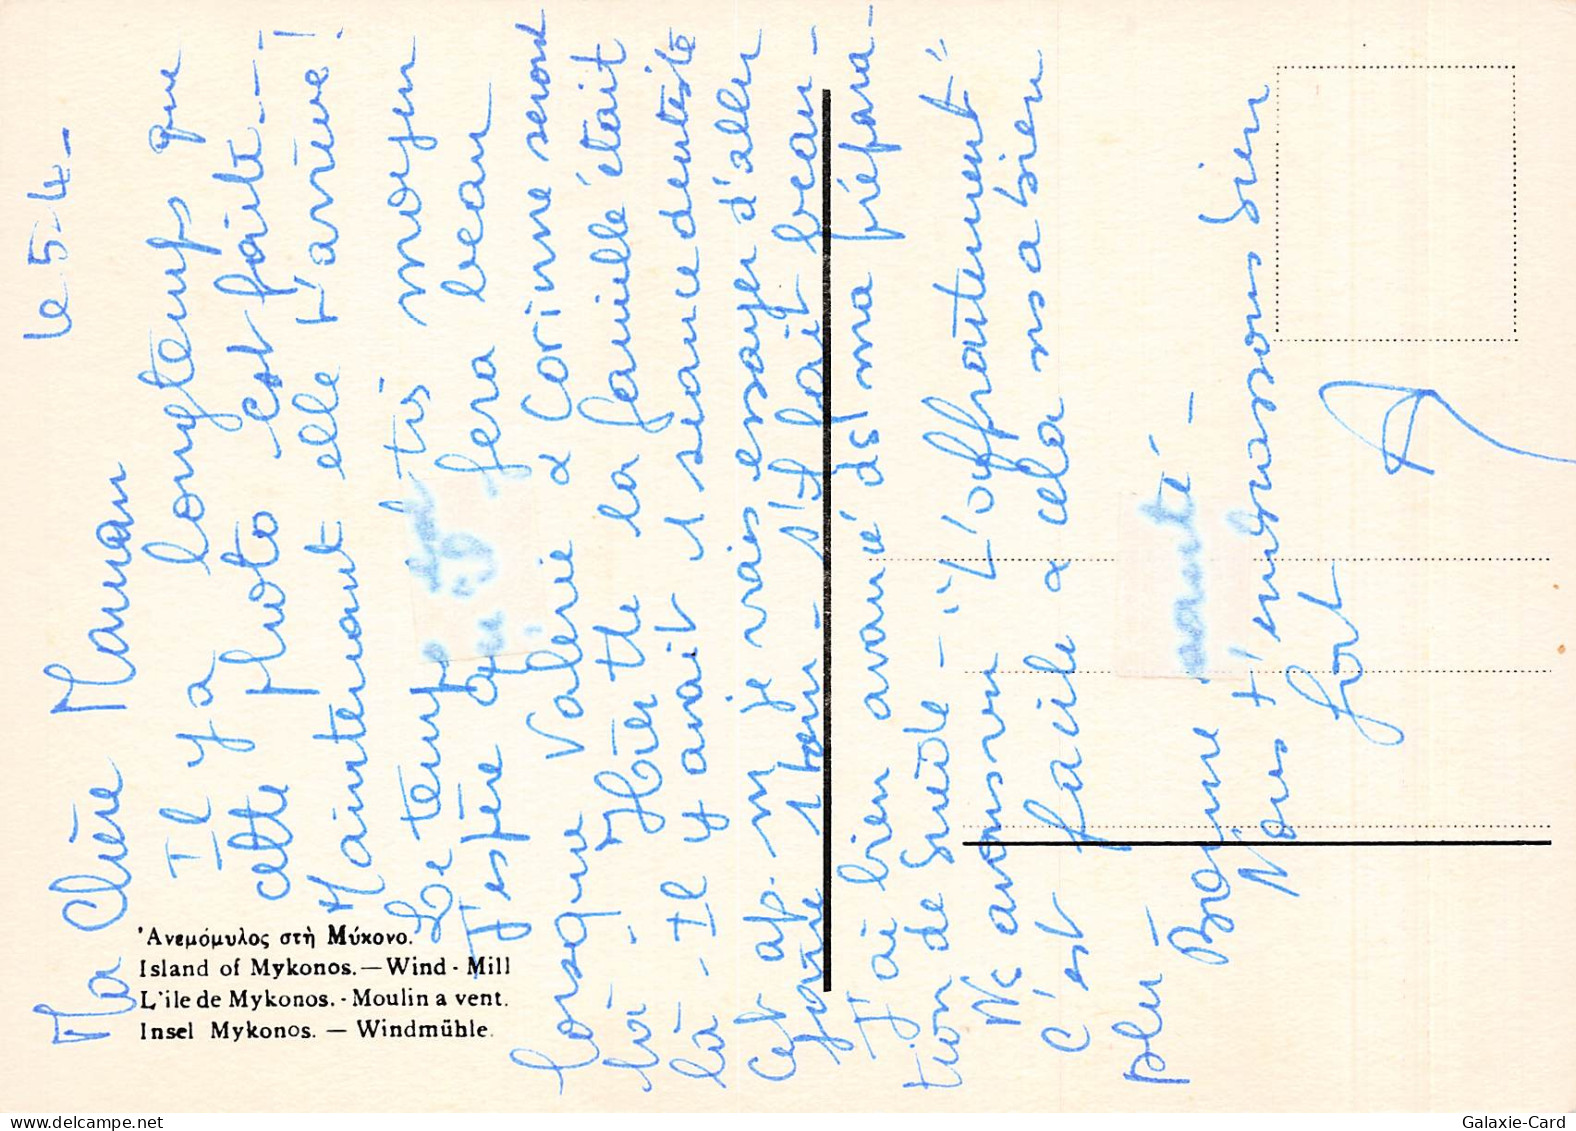 le 5-4-
Ma Chère Maman
Il y a longtemps que
cette photo est faite---
Maintenant elle t'arrive!
Le temps est très moyen
J'espère qu'il fera beau
lorsque Valérie & Corinne seront
là. Hier tte la famille était
là. Il y avait 1 séance dentiste
cet ap-m je vais essayer d'aller
faire 1 tour s'il fait beau-
J'ai bien avancé ds ma prépara-
tion de Suède - "L'affrontement"
Ns avons vu
c'est facile & cela ns a bien
plu
Bonne santé -
Nous t'embrassons bien
fort
A
'Ανεμόμυλος στὴ Μύκονο.
Island of Mykonos.—Wind-Mill
L'ile de Mykonos.-Moulin a vent.
Insel Mykonos. — Windmühle.
Galaxie-Card